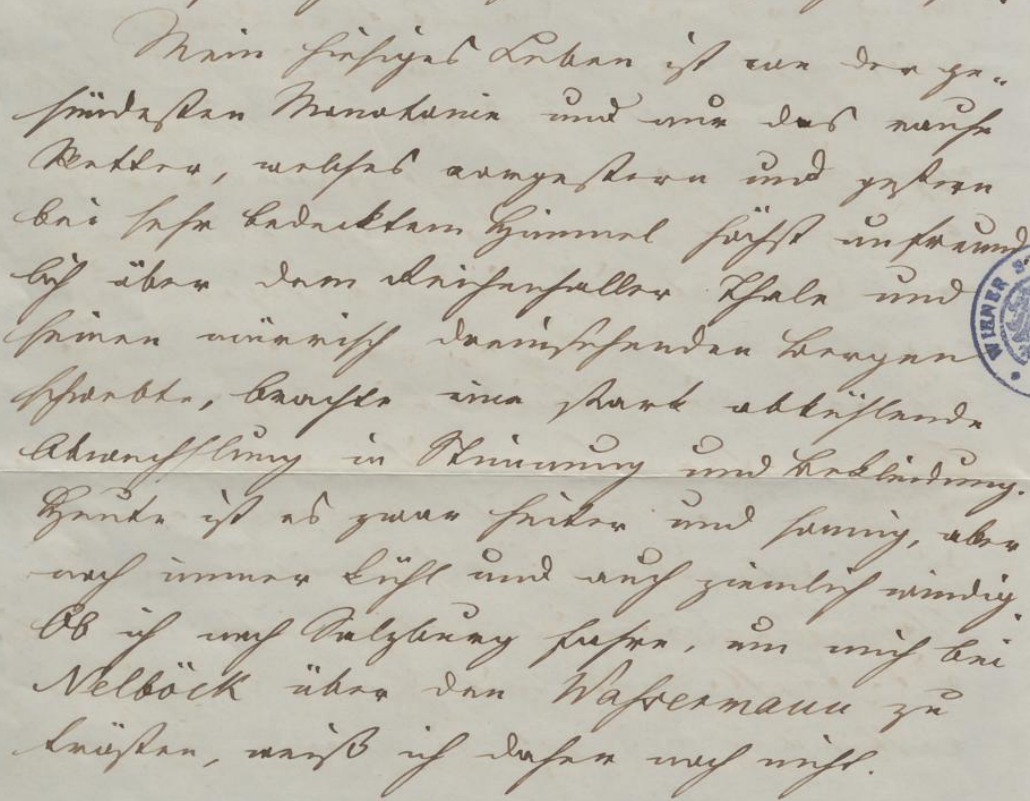 Mein hiesiges Leben ist von der ge-
sündesten Monotonie und nur das rauhe
Wetter, welches vorgestern und gestern
bei sehr bedecktem Himmel höchst unfreund
lich über dem Reichenhaller Thale und
seinen mürrisch dreinsehenden Bergen
schwebte, brachte eine stark abkühlende
Abwechslung in Stimmung und Bekleidung.
Heute ist es zwar heiter und sonnig, aber
noch immer kühl und auch ziemlich windig.
Ob ich nach Salzburg fahre, um mich bei
Nelböck über den Wassermann zu
trösten, weiß ich daher noch nicht.
WIENER